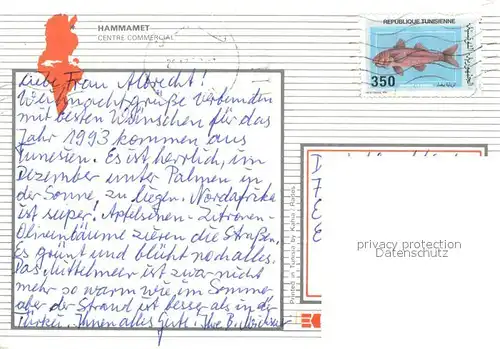 HAMMAMET
CENTRE COMMERCIAL
REPUBLIQUE TUNISIENNE
350
Liebe Frau Albrecht!
Weihnachtsgrüße verbunden
mit besten Wünschen für das
Jahr 1993 kommen aus
Tunesien. Es ist herrlich, im
Dezember unter Palmen in
der Sonne, zu liegen. Nordafrika
ist super! Apfelsinen- Zitronen-
Olivenbäume zieren die Straßen.
Es grünt und blüht noch alles.
Das Mittelmeer ist zwar nicht
mehr so warm wie im Sommer
aber der Strand ist besser als in der
Türkei. Ihnen alles Gute! Ihre B.
Printed in Tunisia by Kahia
privacy protection
Datenschutz